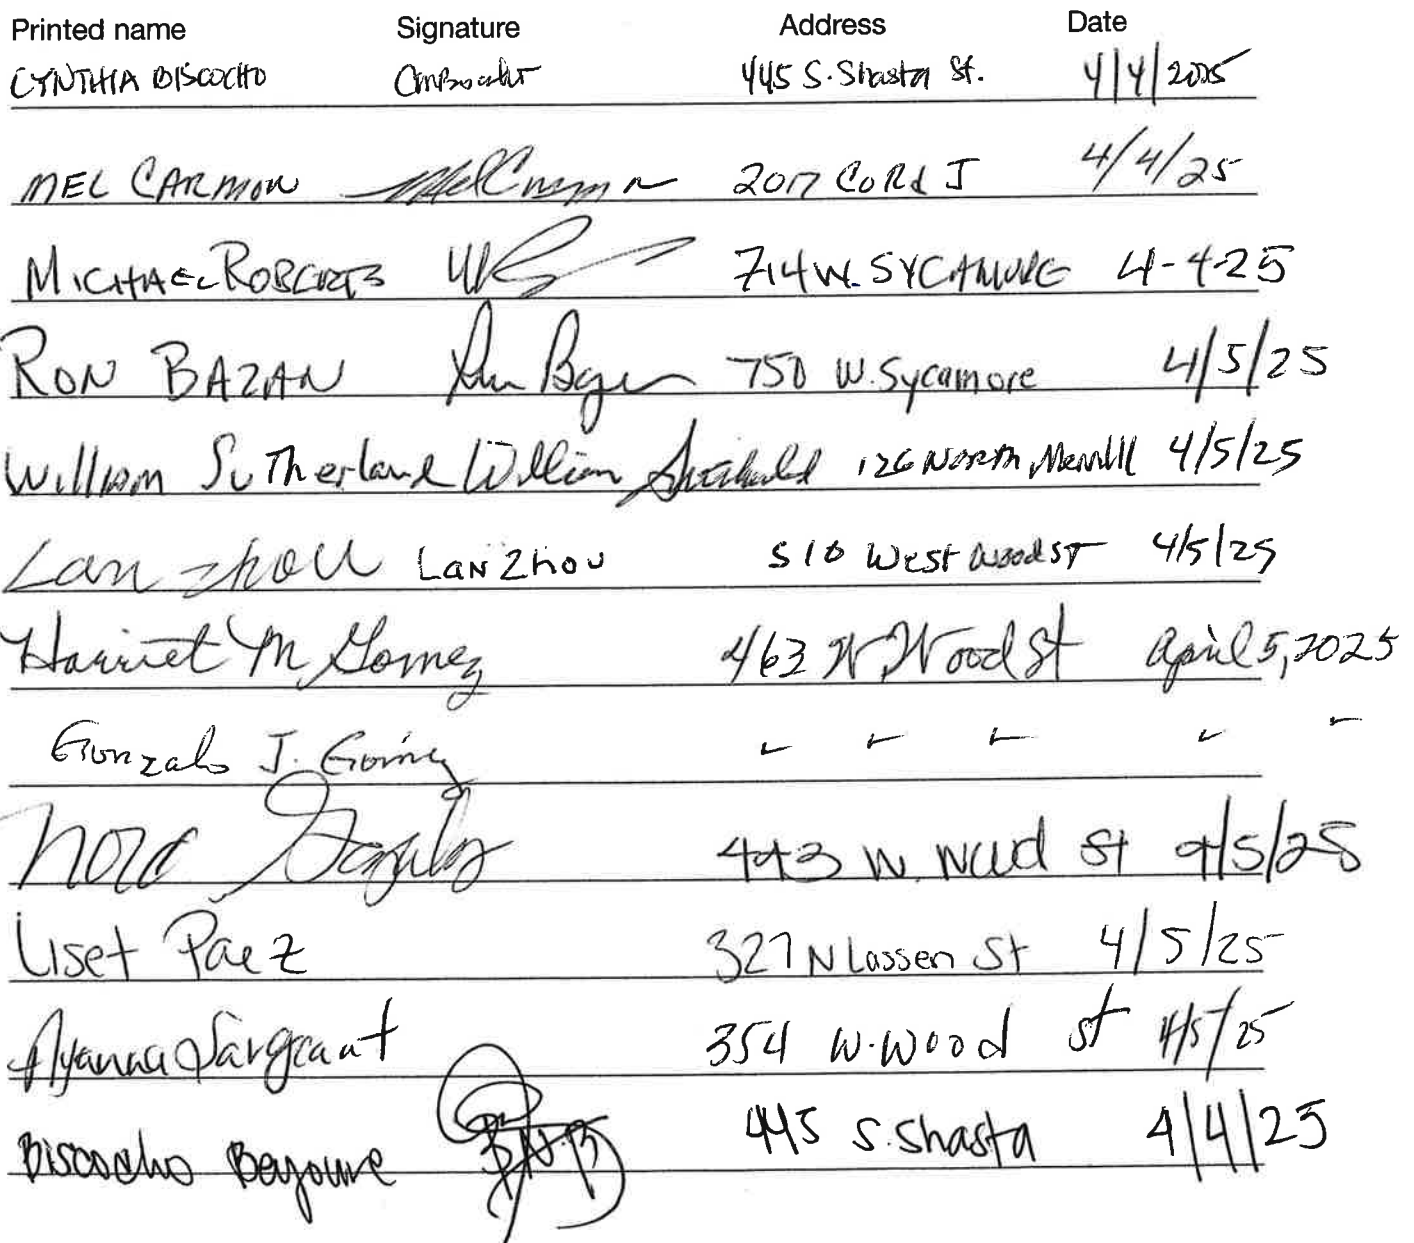 Printed name Signature Address Date
CYNTHIA BISCOCHO 445 S. Shasta St. 4/4/2025
MEL CARMON Mel Carmon 2017 CoRd J 4/4/25
MICHAEL ROBERTS 714 W. SYCAMORE 4-4-25
RON BAZAN 750 W. Sycamore 4/5/25
William Sutherland William Sutherland 126 North Merrill 4/5/25
Lan Zhou Lan Zhou 510 West Wood ST 4/5/25
Harriet M. Gomez 463 W Wood St April 5, 2025
Gonzalo J. Gomez
Nora Gonzalez 443 W. Wood St 4/5/25
Liset Paez 327 N Lassen St 4/5/25
Ayanna Sargeant 354 W. Wood st 4/5/25
Biscocho 445 S. Shasta 4/4/25